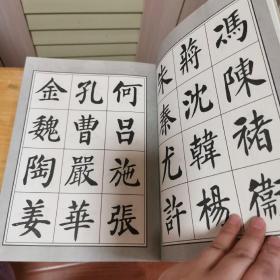 馮陳褚衛
蔣沈韓楊
朱秦尤許
何呂施張
孔曹嚴華
金魏陶姜